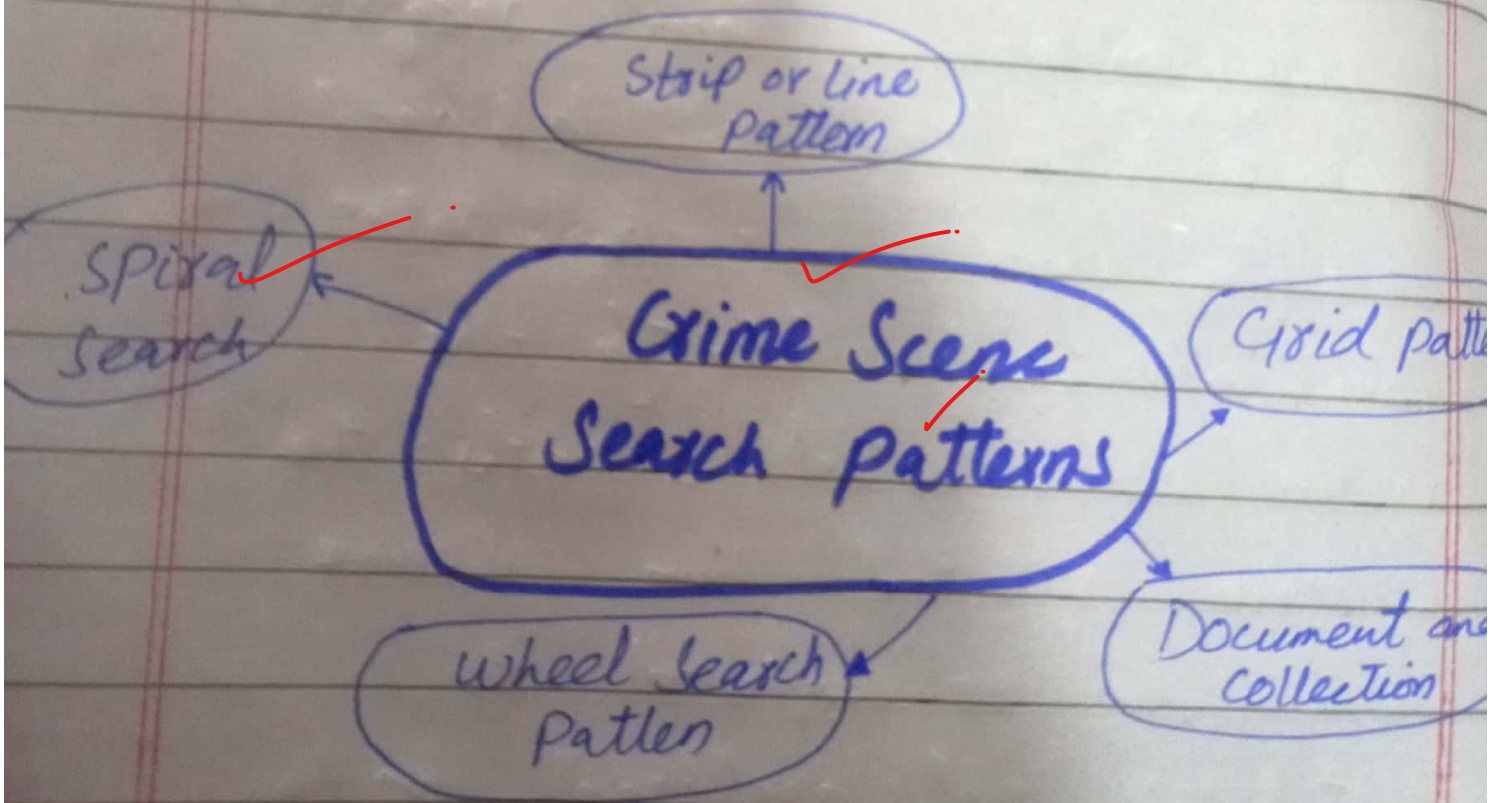 Strip or line
pattern
Spiral
Search
Crime Scene
Search patterns
Grid patte
Document and
Collection
Wheel Search
Patlen